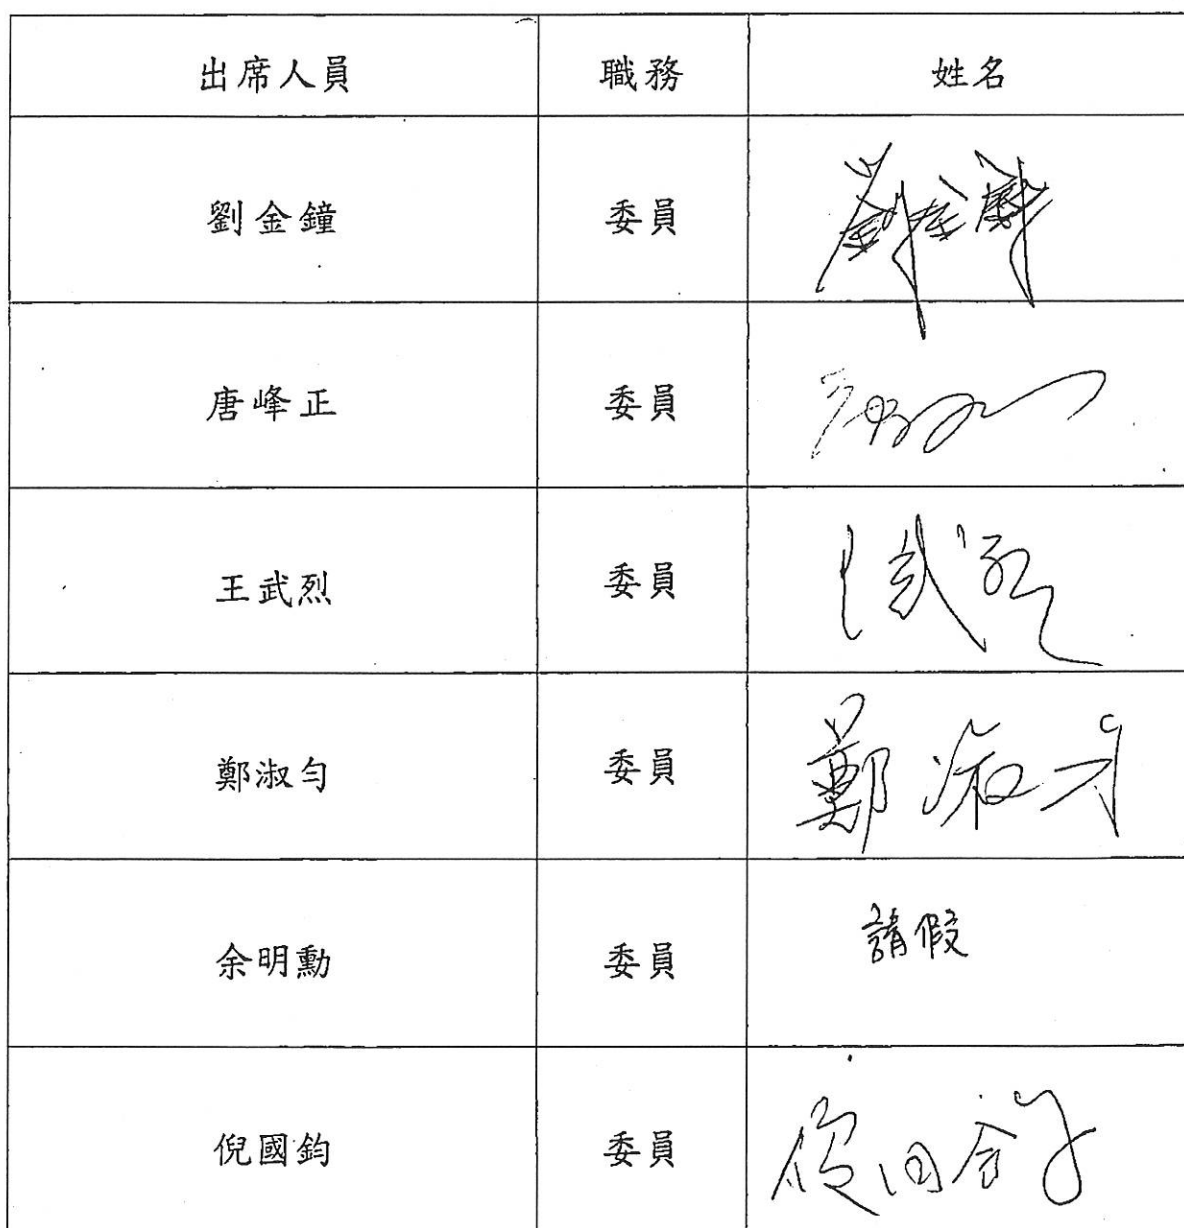 出席人員 職務 姓名
劉金鐘 委員 劉金鐘
唐峰正 委員
王武烈 委員 王武烈
鄭淑勻 委員 鄭淑勻
余明勳 委員 請假
倪國鈞 委員 倪國鈞